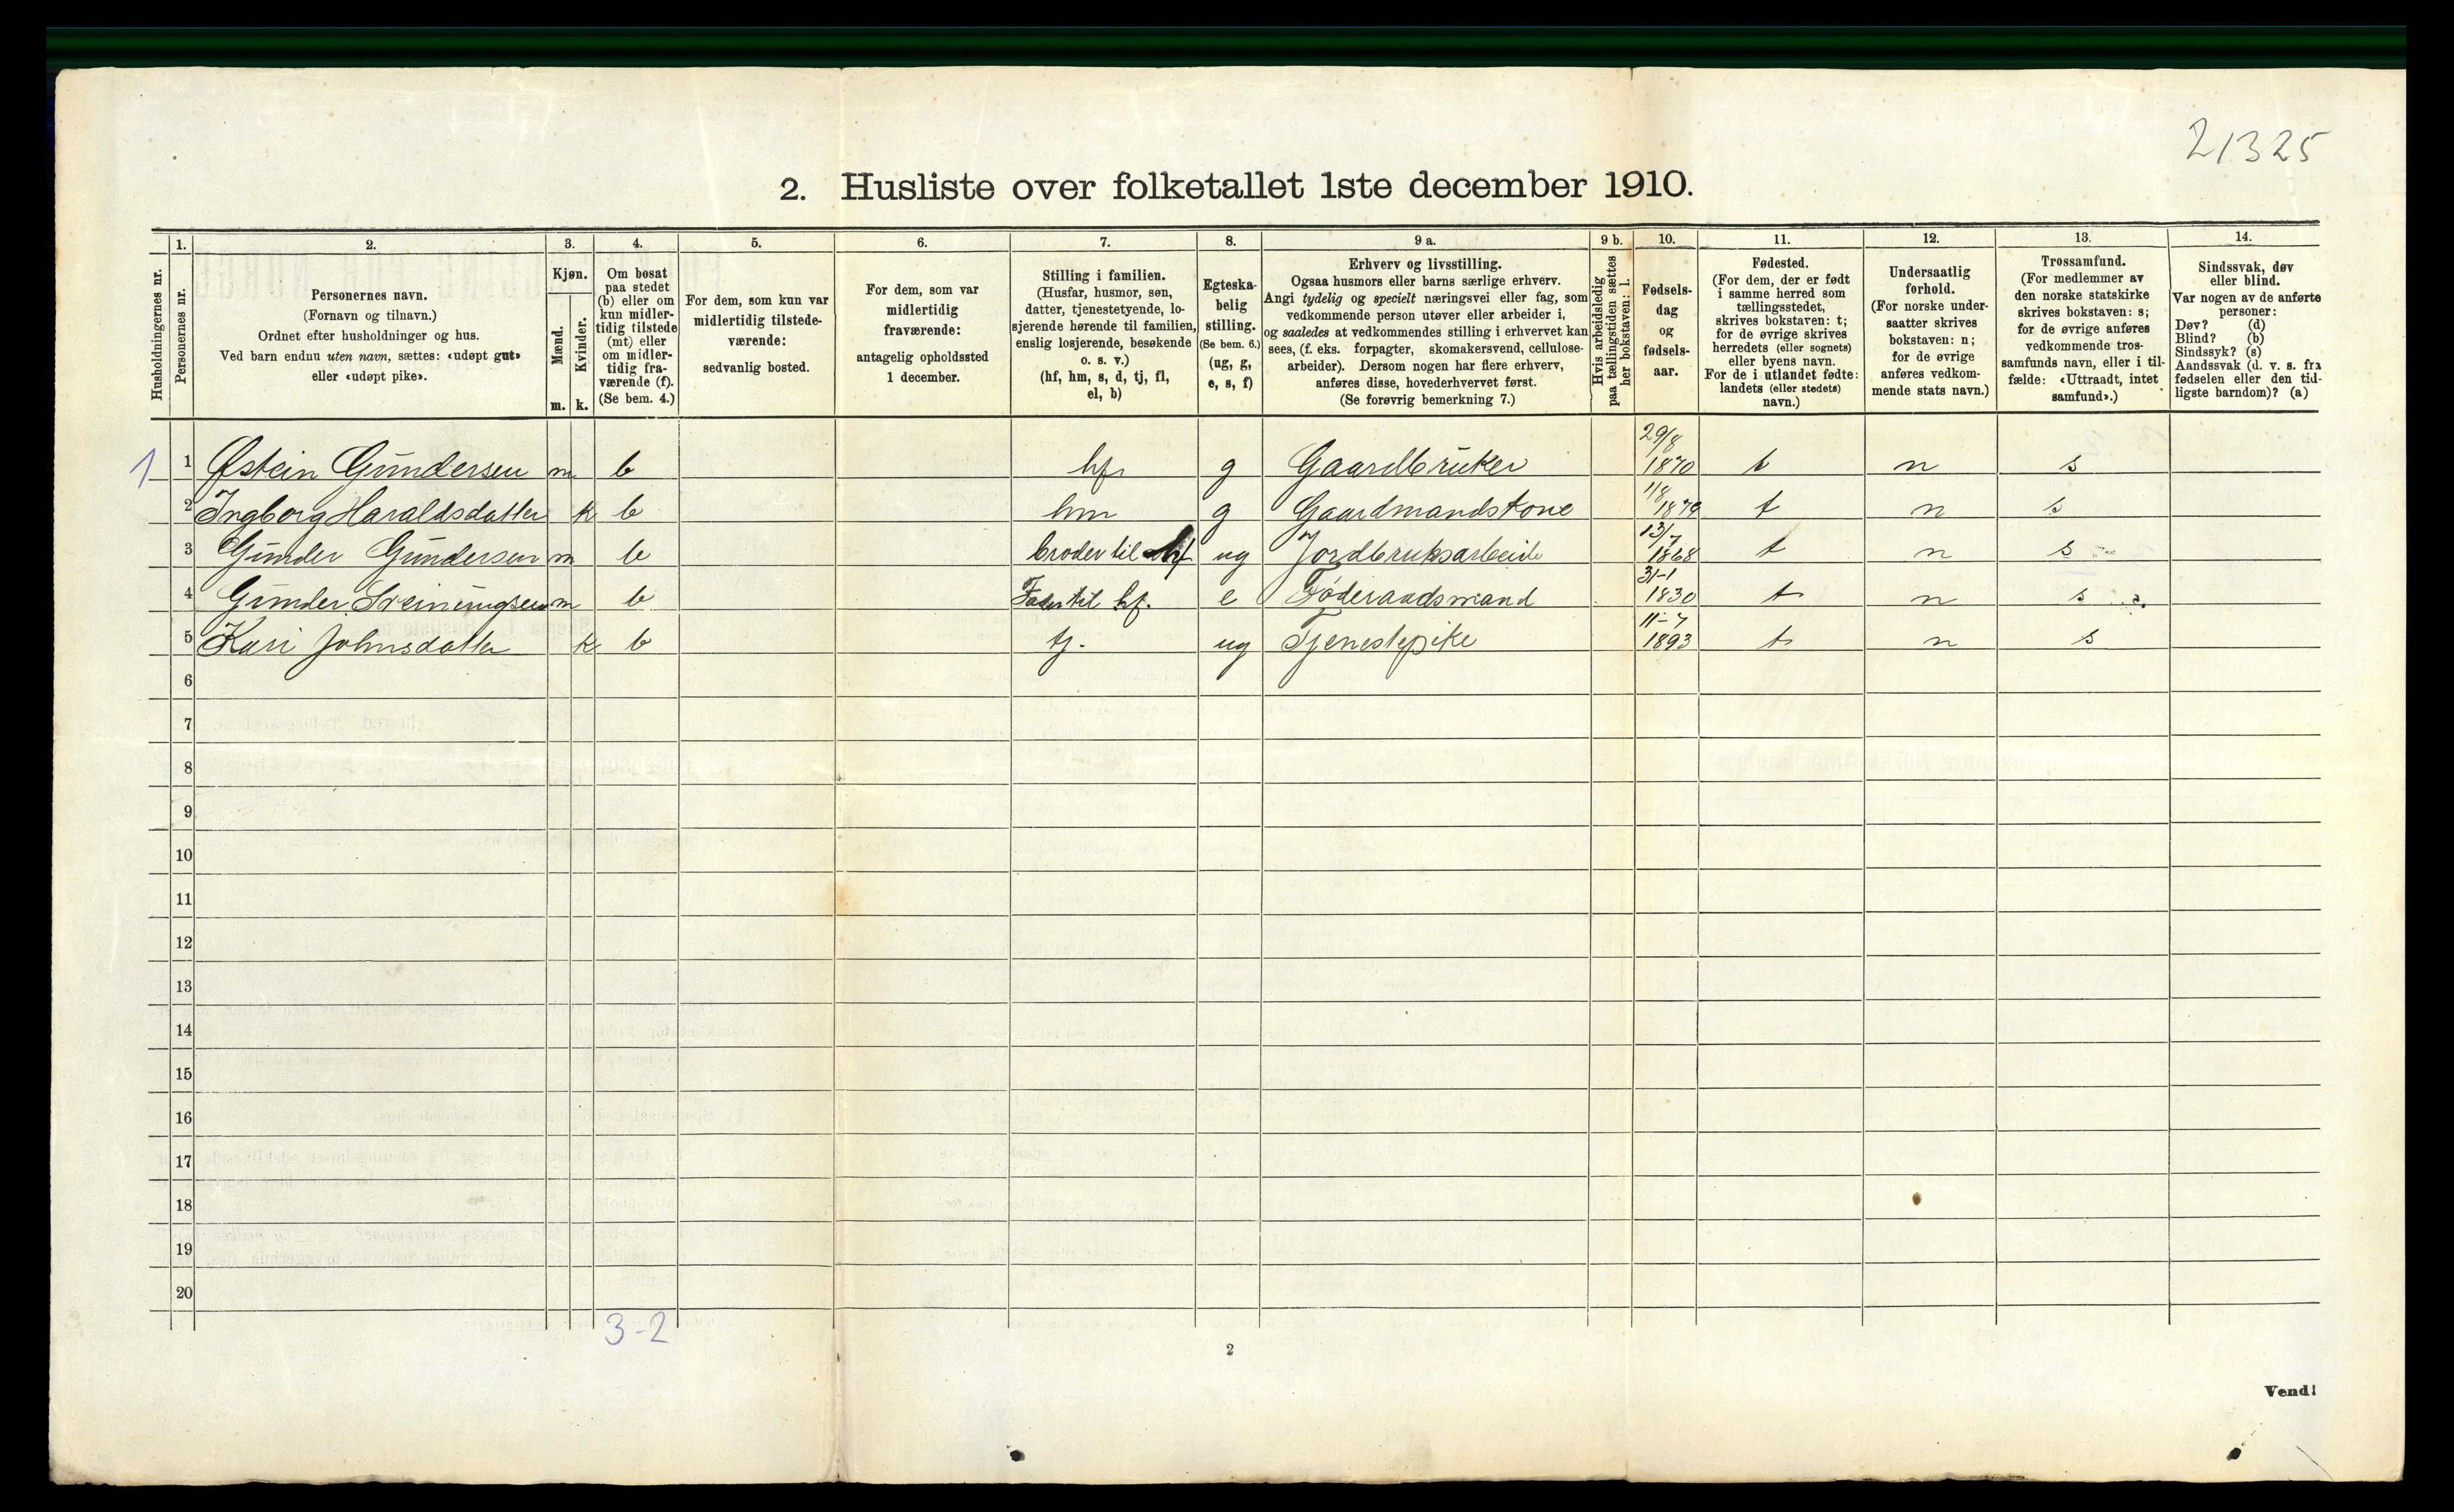 21325
2. Husliste over folketallet 1ste december 1910.
Husholdningernes nr.
1.
Personernes nr.
2.
Personernes navn.
(Fornavn og tilnavn.)
Ordnet efter husholdninger og hus.
Ved barn endnu uten navn, sættes: «udøpt gut»
eller «udøpt pike».
3.
Kjøn.
Mænd.
Kvinder.
m. k.
4.
Om bosat
paa stedet
(b) eller om
kun midler-
tidig tilstede
(mt) eller
om midler-
tidig fra-
værende (f).
(Se bem. 4.)
5.
For dem, som kun var
midlertidig tilstede-
værende:
sedvanlig bosted.
6.
For dem, som var
midlertidig
fraværende:
antagelig opholdssted
1 december.
7.
Stilling i familien.
(Husfar, husmor, søn,
datter, tjenestetyende, lo-
sjerende hørende til familien,
enslig losjerende, besøkende
o. s. v.)
(hf, hm, s, d, tj, fl,
el, b)
8.
Egteska-
belig
stilling.
(Se bem. 6.)
(ug, g,
e, s, f)
9 a.
Erhverv og livsstilling.
Ogsaa husmors eller barns særlige erhverv.
Angi tydelig og specielt næringsvei eller fag, som
vedkommende person utøver eller arbeider i,
og saaledes at vedkommendes stilling i erhvervet kan
sees, (f. eks. forpagter, skomakersvend, cellulose-
arbeider). Dersom nogen har flere erhverv,
anføres disse, hovederhvervet først.
(Se forøvrig bemerkning 7.)
9 b.
Hvis arbeidsledig
paa tællingstiden sættes
her bokstaven: l.
10.
Fødsels-
dag
og
fødsels-
aar.
11.
Fødested.
(For dem, der er født
i samme herred som
tællingsstedet,
skrives bokstaven: t;
for de øvrige skrives
herredets (eller sognets)
eller byens navn.
For de i utlandet fødte:
landets (eller stedets)
navn.)
12.
Undersaatlig
forhold.
(For norske under-
saatter skrives
bokstaven: n;
for de øvrige
anføres vedkom-
mende stats navn.)
13.
Trossamfund.
(For medlemmer av
den norske statskirke
skrives bokstaven: s;
for de øvrige anføres
vedkommende tros-
samfunds navn, eller i til-
fælde: «Uttraadt, intet
samfund».)
14.
Sindssvak, døv
eller blind.
Var nogen av de anførte
personer:
Døv? (d)
Blind? (b)
Sindssyk? (s)
Aandssvak (d. v. s. fra
fødselen eller den tid-
ligste barndom)? (a)
1 1 Østein Gundersen m b hf g Gaardbruker 29/8 1870 t n s
2 Ingborg Haraldsdatter k b hm g Gaardmandskone 1/8 1879 t n s
3 Gunder Gundersen m b broder til hf ug Jordbruksarbeide 13/7 1868 t n s
4 Gunder Sveinungsen m b Fader til hf. e Føderaadsmand 31-1 1830 t n s
5 Kari Johnsdatter k b tj. ug Tjenestepike 11-7 1893 t n s
6
7
8
9
10
11
12
13
14
15
16
17
18
19
20
3-2
2
Vend!